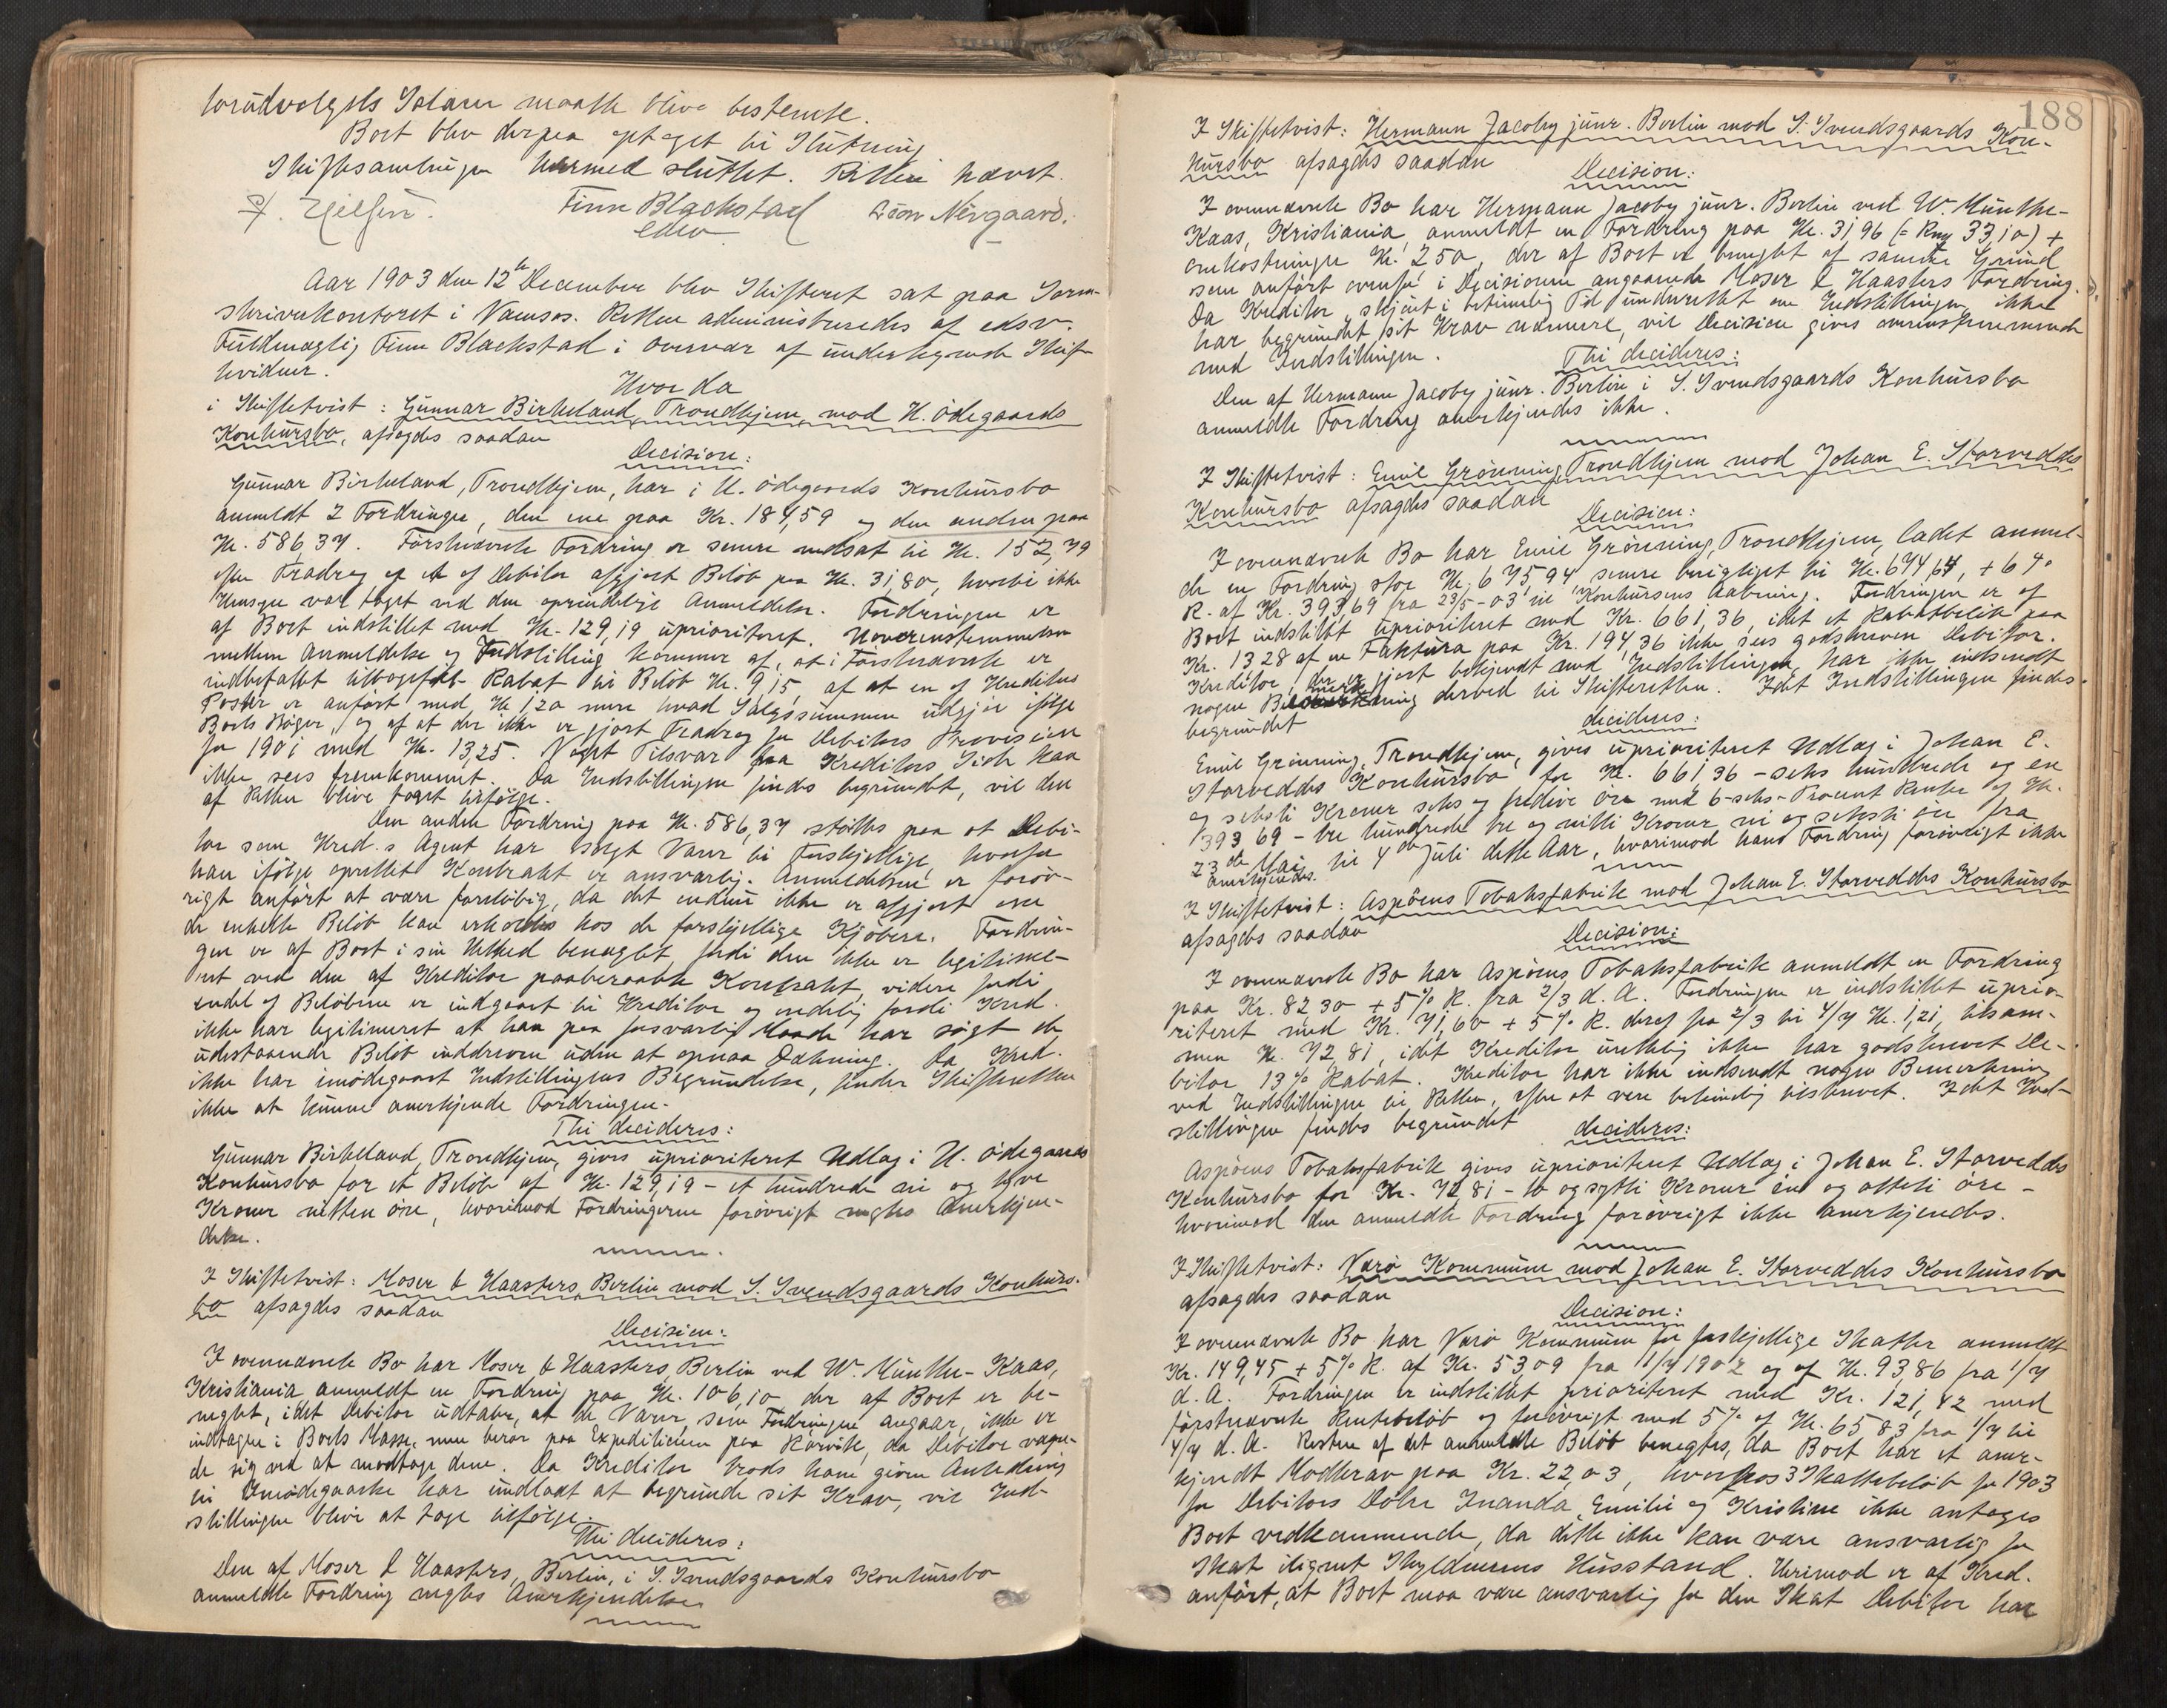 maatte blive bestemte.
Boet blev derpaa optaget til Slutning
Skiftesamlingen hermed sluttet. Retten hævet.
Finn Blackstad
edsv
Aar 1903 den 12te December blev Skifteret sat paa Soren-
skriverkontoret i Namsos. Retten administreredes af edsv.
Fuldmægtig Finn Blackstad i Overvær af undertegnede Skifte-
vidner.
Hvor da
i Skiftetvist: Gunnar Birkeland, Trondhjem, mod H. Ødegaards
Konkursbo, afsagdes saadan
Decision:
Gunnar Birkeland, Trondhjem, har i H. Ødegaards Konkursbo
anmeldt 2 Fordringer, den ene paa Kr. 184,59 og den anden paa
Kr. 586,34. Førstnævnte Fordring er senere nedsat til Kr. 152,79
efter Fradrag af et af Debitor afgjort Beløb paa Kr. 31,80, hvortil ikke
Hensyn var taget ved den oprindelige Anmeldelse. Fordringen er
af Boet indstillet med Kr. 129,19 uprioriteret. Uoverensstemmelsen
mellem Anmeldelse og Indstilling kommer af, at i Førstnævnte er
indbefattet Rabat til Beløb Kr. 9,15, af at en af Kreditors
Poster er anført med Kr. 1,20 mere hvad Salgssummen udgjør ifølge
Boets Bøger, og af at der ikke er gjort Fradrag for Debitors Provision
for 1901 med Kr. 13,25. Noget Tilsvar fra Kreditors Side kan
ikke sees fremkommet. Da Indstillingen findes begrundet, vil den
af Retten blive taget tilfølge.
Den anden Fordring paa Kr. 586,34 støttes paa at Debi-
tor som Kred.s Agent har solgt Varer til Forskjellige, hvorfor
han ifølge oprettet Kontrakt er ansvarlig. Anmeldelsen er forøv-
rigt anført at være foreløbig, da det endnu ikke er afgjort om
de enkelte Beløb kan erholdes hos de forskjellige Kjøbere. Fordrin-
gen er af Boet i sin Helhed benægtet, fordi den ikke er legitime-
ret ved den af Kreditor paaberaabte Kontrakt, videre fordi
endel af Beløbene er indgaaet til Kreditor og endelig fordi Kred.
ikke har legitimeret at han paa forsvarlig Maade har søgt de
udestaaende Beløb inddrevne uden at opnaa Dækning. Da Kred.
ikke har imødegaaet Indstillingens Begrundelse, finder Skifteretten
ikke at kunne anerkjende Fordringen.
Thi decideres:
Gunnar Birkeland, Trondhjem, gives uprioriteret Udlæg i H. Ødegaards
Konkursbo for et Beløb af Kr. 129,19 - et hundrede ni og tyve
Kroner nitten øre, hvorimod Fordringerne forøvrigt nægtes Anerkjen-
delse.
I Skiftetvist: Moser & Haasters, Berlin mod S. Svendsgaards Konkurs-
bo afsagdes saadan
Decision:
I ovennævnte Bo har Moser & Haasters, Berlin ved W. Münthe-Kaas,
Kristiania anmeldt en Fordring paa Kr. 106,10 der af Boet er be-
nægtet, idet Debitor udtaler, at de Varer, som Fordringen angaar, ikke er
indtagne i Boets Masse, men beror paa Expeditionen paa Rørvik, da Debitor vægre-
de sig ved at modtage dem. Da Kreditor trods ham given Anledning
til Imødegaaelse har undladt at begrunde sit Krav, vil Ind-
stillingen blive at tage tilfølge.
Thi decideres:
Den af Moser & Haasters, Berlin, i S. Svendsgaards Konkursbo
anmeldte Fordring nægtes Anerkjendelse.
188
I Skiftetvist: Hermann Jacoby junr. Berlin mod S. Svendsgaards Kon-
kursbo afsagdes saadan
Decision:
I ovennævnte Bo har Hermann Jacoby junr. Berlin ved W. Münthe-
Kaas, Kristiania, anmeldt en Fordring paa Kr. 31,96 (= Rmk 33,10) +
omkostninger Kr. 2,50, der af Boet er benægtet af samme Grund
som anført ovenfor i Decisionen angaaende Moser & Haasters Fordring.
Da Kreditor, skjønt i betimelig Tid underrettet om Indstillingen, ikke
har begrundet sit Krav nærmere, vil Decision gives overensstemmende
med Indstillingen.
Thi decideres:
Den af Hermann Jacoby junr. Berlin i S. Svendsgaards Konkursbo
anmeldte Fordring anerkjendes ikke.
I Skiftetvist: Emil Grønning, Trondhjem mod Johan E. Storvedds
Konkursbo afsagdes saadan
Decision:
I ovennævnte Bo har Emil Grønning, Trondhjem, ladet anmel-
de en Fordring stor Kr. 675,94, senere berigtiget til Kr. 674,64, + 6 %
R. af Kr. 393,69 fra 23/5-03 til Konkursens Aabning. Fordringen er af
Boet indstillet uprioriteret med Kr. 661,36, idet et Rabatbeløb paa
Kr. 13,28 af en Faktura paa Kr. 194,36 ikke sees godskreven Debitor.
Kreditor, der er gjort bekjendt med Indstillingen, har ikke indsendt
nogen Bemærkning derved til Skifteretten. Idet Indstillingen findes
begrundet
decideres:
Emil Grønning, Trondhjem, gives uprioriteret Udlæg i Johan E.
Storvedds Konkursbo for Kr. 661,36 - seks hundrede og en
og seksti Kroner seks og tredive øre med 6-seks-Procent Rente af Kr.
393,69 - tre hundrede tre og nitti Kroner ni og seksti øre fra
23de Mai til 4de Juli dette Aar, hvorimod hans Fordring forøvrigt ikke
anerkjendes.
I Skiftetvist: Aspöens Tobaksfabrik mod Johan E. Storvedds Konkursbo
afsagdes saadan
Decision:
I ovennævnte Bo har Aspöens Tobaksfabrik anmeldt en Fordring
paa Kr. 82,30 + 5 % R. fra 2/3 d. A. Fordringen er indstillet uprio-
riteret med Kr. 71,60 + 5 % R. deraf fra 2/3 til 4/7 Kr. 1,21, tilsam-
men Kr. 72,81, idet Kreditor urettelig ikke har godskrevet De-
bitor 13 % Rabat. Kreditor har ikke indsendt nogen Bemerkning
ved Indstillingen til Retten, efter at være betimelig tilskrevet. Idet Ind-
stillingen findes begrundet decideres:
Aspöens Tobaksfabrik gives uprioriteret Udlæg i Johan E. Storvedds
Konkursbo for Kr. 72,81 - to og sytti Kroner en og otteti øre -
hvorimod den anmeldte Fordring forøvrigt ikke anerkjendes.
I Skiftetvist: Nærø Kommune mod Johan E. Storvedds Konkursbo
afsagdes saadan
Decision:
I ovennævnte Bo har Nærø Kommune for forskjellige Skatter anmeldt
Kr. 149,45 + 5 % R. af Kr. 53,09 fra 1/7 1902 og af Kr. 93,86 fra 1/7
d. A. Fordringen er indstillet prioriteret med Kr. 121,42 med
førstnævnte Rentebeløb og forøvrigt med 5 % af Kr. 65,83 fra 1/7 til
4/7 d. A. Resten af det anmeldte Beløb benegtes, da Boet har et aner-
kjendt Modkrav paa Kr. 22,03, hvorhos 3 Skattebeløb for 1903
for Debitors Døtre Inanda, Emilie og Kristine ikke antages
Boet vedkommende, da dette ikke kan være ansvarlig for
Skat ilignet Skyldnerens Husstand. Herimod er af Kred.
anført, at Boet maa være ansvarlig for den Skat Debitor har